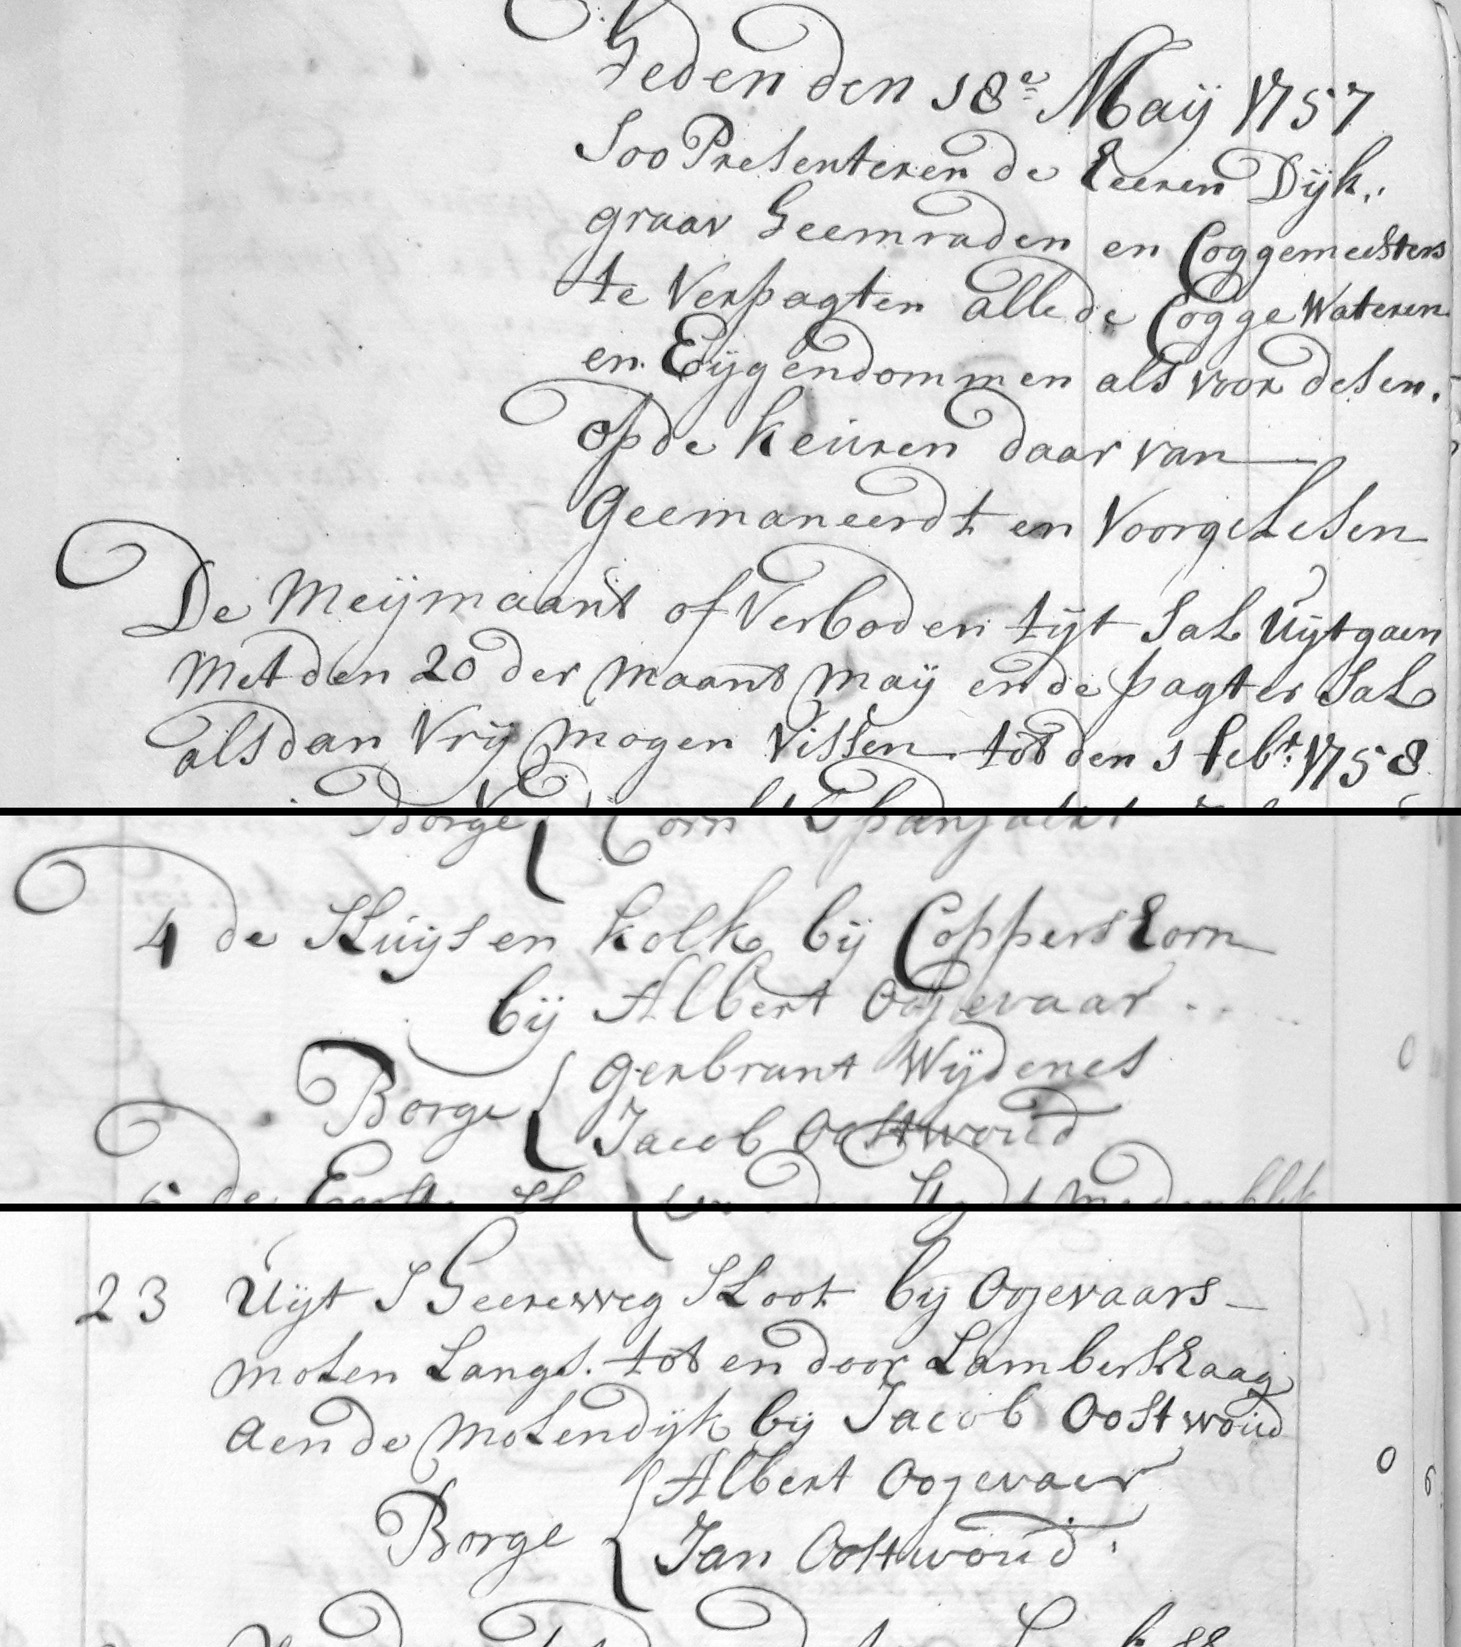 Heden den 18e Maij 1757
Soo Presenteren de Heeren Dijk,,
graav Heemraden en Coggemeesters
te Verpagten alle de Cogge Wateren
en Eijgendommen als voor desen.
op de Keuren daar van
Geemaneerdt en Voorgelesen
De Meijmaant of Verboden tijt Sal Uijtgaen
Met den 20 der maant maij en de pagter Sal
als dan Vrij mogen Vissen tot den 1 febr. 1758
Borge Corn Spanjaert
4 de Sluijsen kolk bij Coppershorn
bij Albert Oojevaar
Gerbrant Wijdenes
Borge
Jacob Oostwoud
de Eerste
23 Uijt S Heereweg Sloot bij Oojevaars
molen Langs tot en door Lambertshaag
aen de Molendijk bij Jacob Oostwoud
Albert Oojevaer 0 6
Borge
Jan Oostwoud